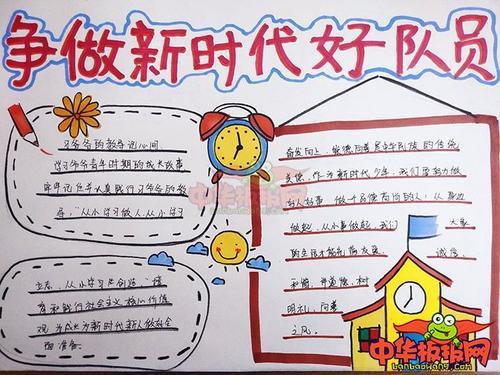 争做新时代好队员
习爷爷的教导记心间
学习爷爷青年时期的成长故事
牢牢记住并认真践行习爷爷的教
导，“从小学习做人，从小学习
立志，从小学习创造”，培
育和践行社会主义核心价值
观，为成为新时代新人做好全
面准备。
奋发向上，崇德向善是中华民族的传统
美德，作为新时代少年，我们要努力做
好人好事，做一个品德高尚的人，从身边
做起，从小事做起，我们
大家
的生活才能充满友爱
诚信
和谐，并重德，树
明礼，向善
之风。
中华板报网
中华板报网
banbaowang.com